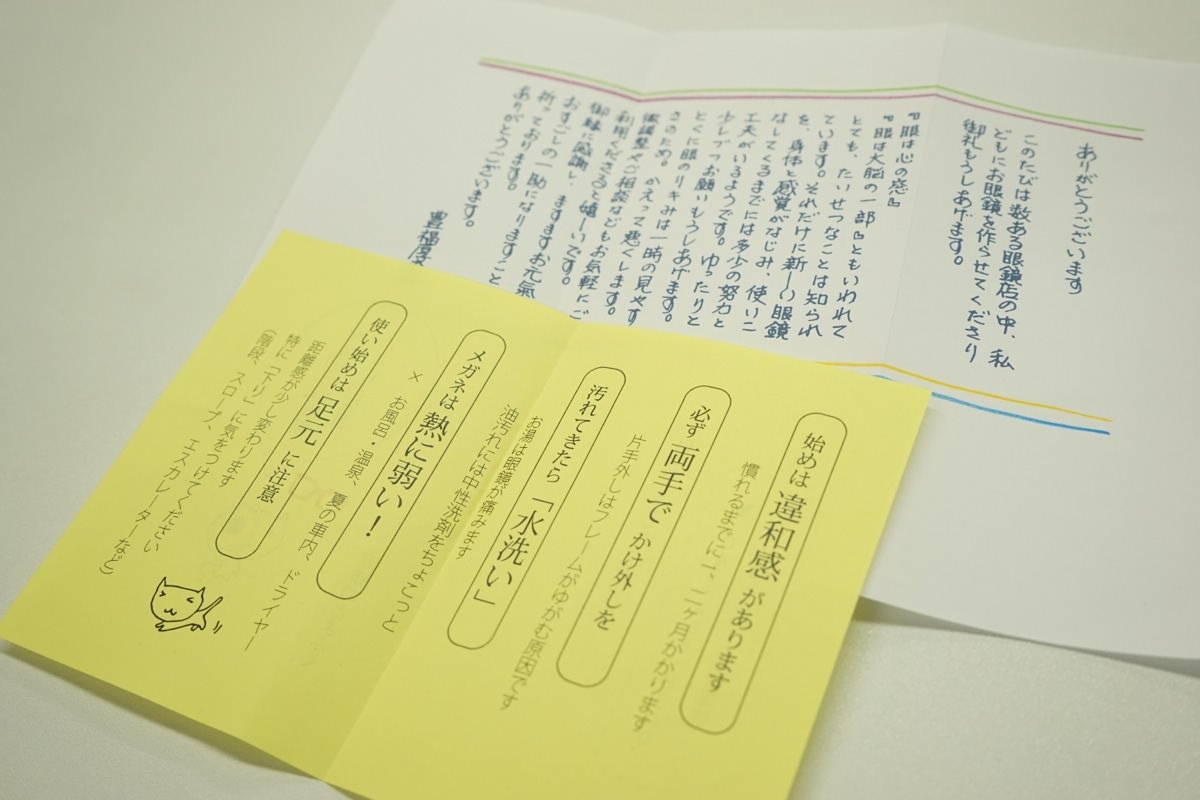 ありがとうございます
このたびは数ある眼鏡店の中、私
どもにお眼鏡を作らせてくださり
御礼もうしあげます。
『眼は心の窓』
『眼は大脳の一部』ともいわれて
とても、たいせつなことは知られ
ています。それだけに新しい眼鏡
を、身体と感覚がなじみ、使いこ
なしてくるまでには多少の努力と
工夫がいるようです。ゆったりと
少しづつお願いもうしあげます。
とくに眼のりきみは一時の見やす
さのため。かえって悪くします。
微調整やご相談などもお気軽にご
利用くださると嬉しいです。
御縁に感謝し、ますますお元氣
おすごしの一助になりますこと
祈っております。
ありがとうございます。
豊福
始めは違和感があります
慣れるまでに一、二ヶ月かかります
必ず両手でかけ外しを
片手外しはフレームがゆがむ原因です
汚れてきたら「水洗い」
お湯は眼鏡が痛みます
油汚れには中性洗剤をちょこっと
メガネは熱に弱い！
× お風呂・温泉、夏の車内、ドライヤー
使い始めは足元に注意
距離感が少し変わります
特に「下り」に気をつけてください
(階段、スロープ、エスカレーターなど)